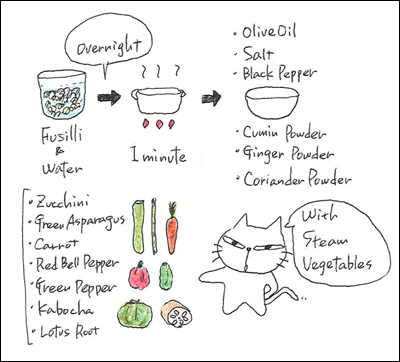 Overnight
Fusilli
&
Water
1 minute
・Olive Oil
・Salt
・Black Pepper
・Cumin Powder
・Ginger Powder
・Coriander Powder
・Zucchini
・Green Asparagus
・Carrot
・Red Bell Pepper
・Green Pepper
・Kabocha
・Lotus Root
With
Steam
Vegetables